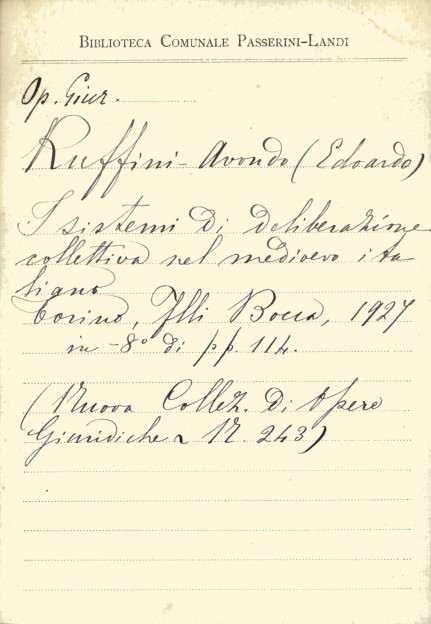 BIBLIOTECA COMUNALE PASSERINI-LANDI
Op. Giur.
Ruffini-Avondo (Edoardo)
I sistemi di deliberazione
collettiva nel medioevo ita
liano
Torino, Flli Bocca, 1927
in-8° di pp. 114.
(Nuova Collez. di Opere
Giuridiche N. 243)